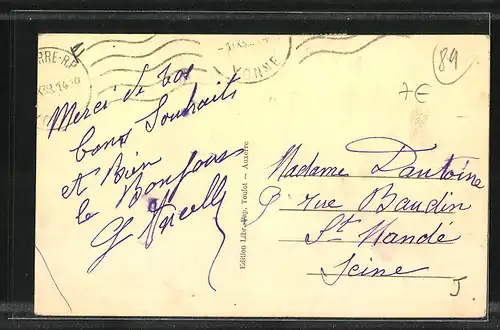 YONNE
89
7€
Merci de vos
bons Souhaits
et Bien
le Bonjour
G
Edition Libr.-Pap. Toulot — Auxerre
Madame Dautoine
9 rue Baudin
St Mandé
Seine